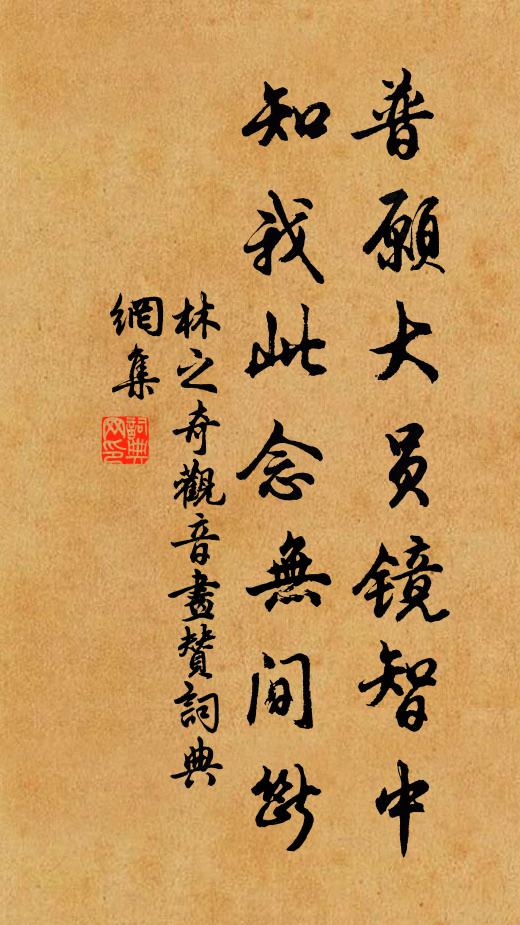 普願大員鏡智中
知我此念無間斷
林之奇觀音畫贊詞典
網集
詞典
网印